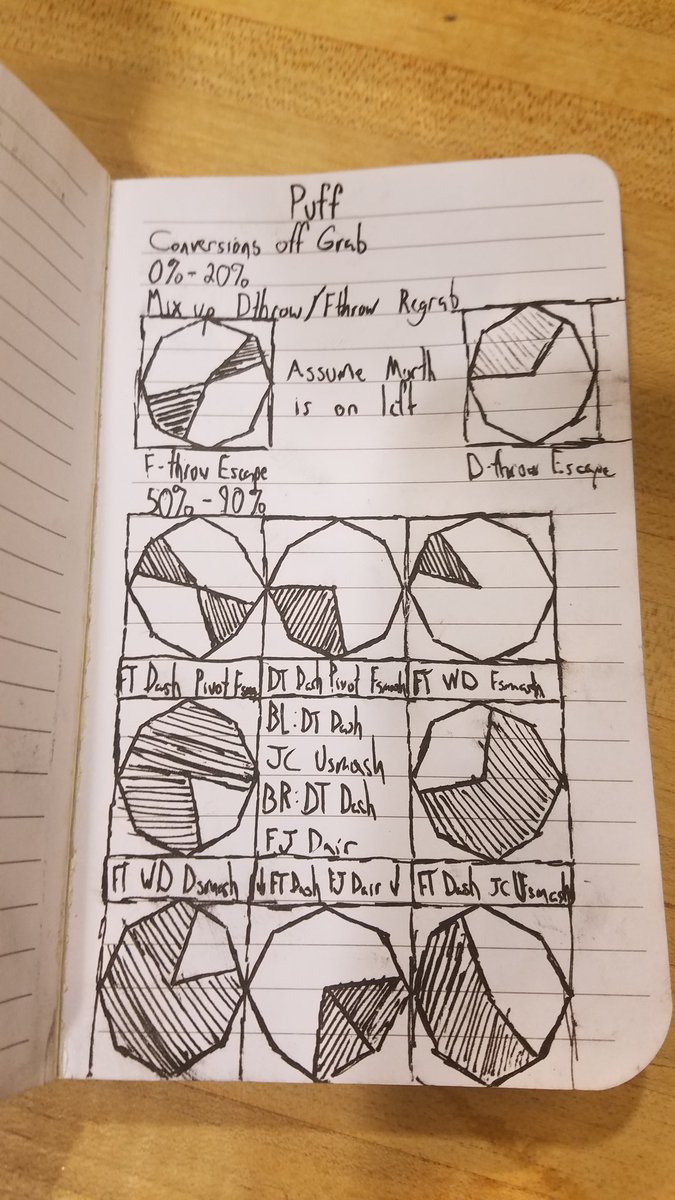 Puff
Conversions off Grab
0%-20%
Mix up Dthrow/Fthrow Regrab
Assume Myrth
is on left
F-throw Escape
D-throw Escape
50%-90%
FT Dash Pivot Fsmash
DT Dash Pivot Fsmash
FT WD Fsmash
BL:DT Dash
JC Usmash
BR:DT Dash
FJ Dair
FT WD Dsmash
↓FT Dash FJ Dair↓
FT Dash JC Usmash